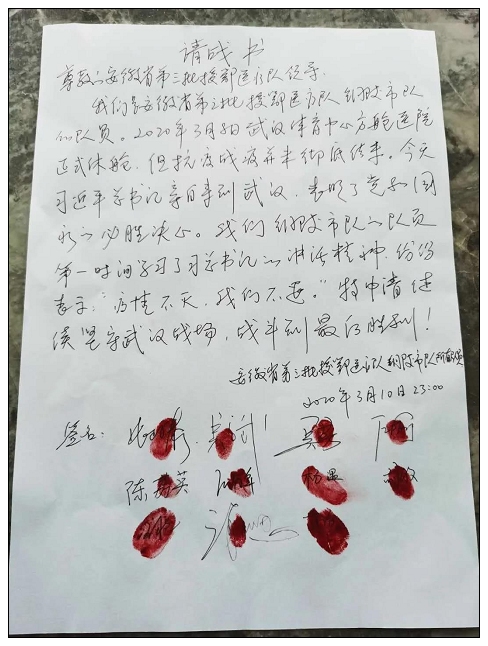 请战书
尊敬的安徽省第三批援鄂医疗队领导:
我们是安徽省第三批援鄂医疗队铜陵市队
的队员。2020年3月8日武汉体育中心方舱医院
正式休舱,但抗疫战疫并未彻底结束。今天
习近平总书记亲自来到武汉,表明了党和国
家的必胜决心。我们铜陵市队的队员
第一时间学习了习总书记的讲话精神,纷纷
表示:“疫情不灭,我们不退。”特申请继
续坚守武汉战场,战斗到最后胜利!
安徽省第三批援鄂医疗队铜陵市队所有队员
2020年3月10日 23:00
签名:
陈 英 杨